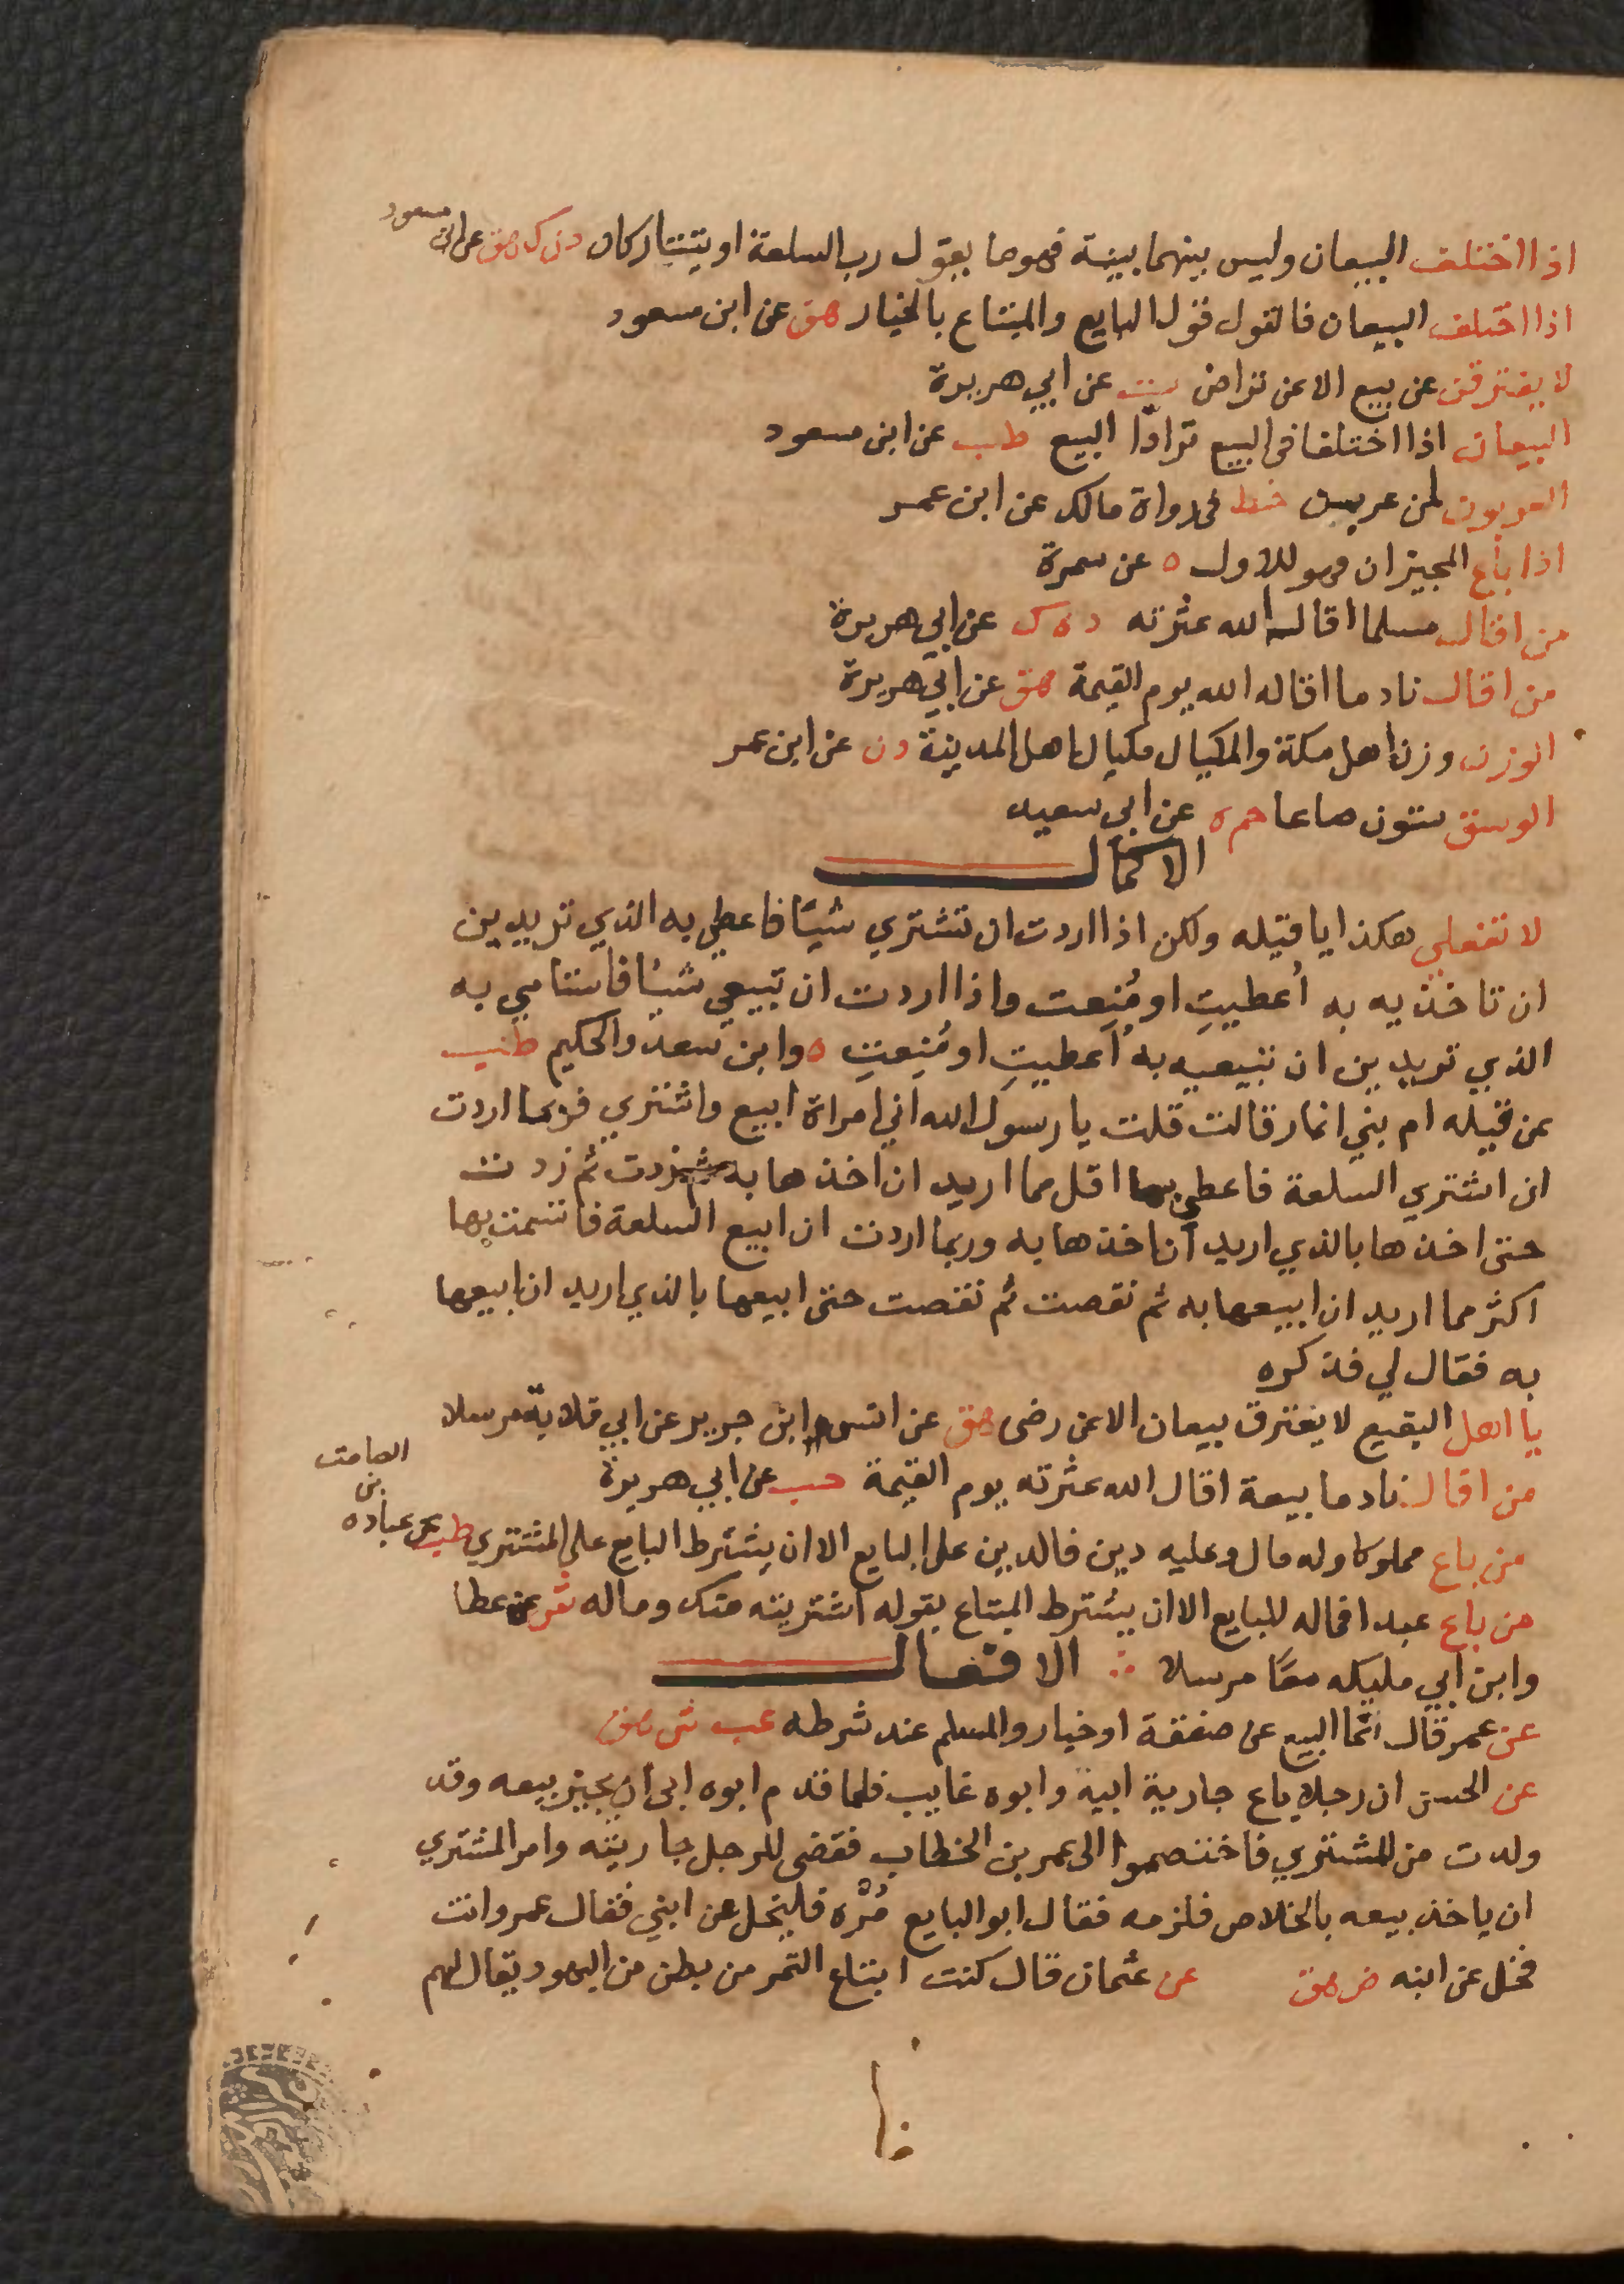 اذا اختلف البيعان وليس بينهما بينة فهو ما يقول رب السلعة او يتتاركان دن ك هق عن ابن مسعود
اذا اختلف البيعان فالقول قول البايع والمبتاع بالخيار هق عن ابن مسعود
لا يفترقن عن بيع الا عن تراض ت عن ابي هريرة
البيعان اذا اختلفا في البيع ترادّا البيع طب عن ابن مسعود
العربون لمن عربن خط في رواة مالك عن ابن عمر
اذا باع المجيزان فهو للاول ه عن سمرة
من اقال مسلما اقاله الله عثرته د ه ك عن ابي هريرة
من اقال نادما اقاله الله يوم القيمة هق عن ابي هريرة
الوزن وزن اهل مكة والمكيال مكيال اهل المدينة دن عن ابن عمر
الوسق ستون صاعا حم ه عن ابي سعيد
الاكمال
لا تفعلي هكذا يا قيله ولكن اذا اردت ان تشتري شيًا فاعطي به الذي تريدين
ان تاخذيه به أعطيتِ او مُنِعت واذا اردت ان تبيعي شيًا فاستامي به
الذي تريدين ان تبيعيه به أعطيتِ او مُنِعتِ ه وابن سعد والحكيم طب
عن قيله ام بني انمار قالت قلت يا رسول الله اني امراة ابيع واشتري فربما اردت
ان اشتري السلعة فاعطي بها اقل مما اريد ان اخذها به ثم زدت ثم زدت
حتى اخذها بالذي اريد ان اخذها به وربما اردت ان ابيع السلعة فاستمت بها
اكثر مما اريد ان ابيعها به ثم نقصت ثم نقصت حتى ابيعها بالذي اريد ان ابيعها
به فقال لي فذكره
يا اهل البقيع لا يفترق بيعان الا عن رضى هق عن انس ابن جرير عن ابي قلابة مرسلا
من اقال نادما بيعة اقال الله عثرته يوم القيمة حب عن ابي هريرة
من باع مملوكا وله مال وعليه دين فالدين على البايع الا ان يشترط البايع على المشتري طب عن عباده بن الصامت
من باع عبدا فماله للبايع الا ان يشترط المبتاع يقوله اشتريته منك وماله عن عطا
وابن ابي مليكه معًا مرسلا ∴ الافعال
عن عمر قال انما البيع عن صفقة او خيار والمسلم عند شرطه عب ش هق
عن الحسن ان رجلا باع جارية ابية وابوه غايب فلما قدم ابوه ابى ان يجيز بيعه وقد
ولدت من المشتري فاختصموا الى عمر بن الخطاب فقضى للرجل جاريته وامر المشتري
ان ياخذ بيعه بالخلاص فلزمه فقال ابو البايع مُرْه فليخل عن ابني فقال عمر وانت
فخل عن ابنه ض هق عن عثمان قال كنت ابتاع التمر من بطن من اليهود يقال لهم